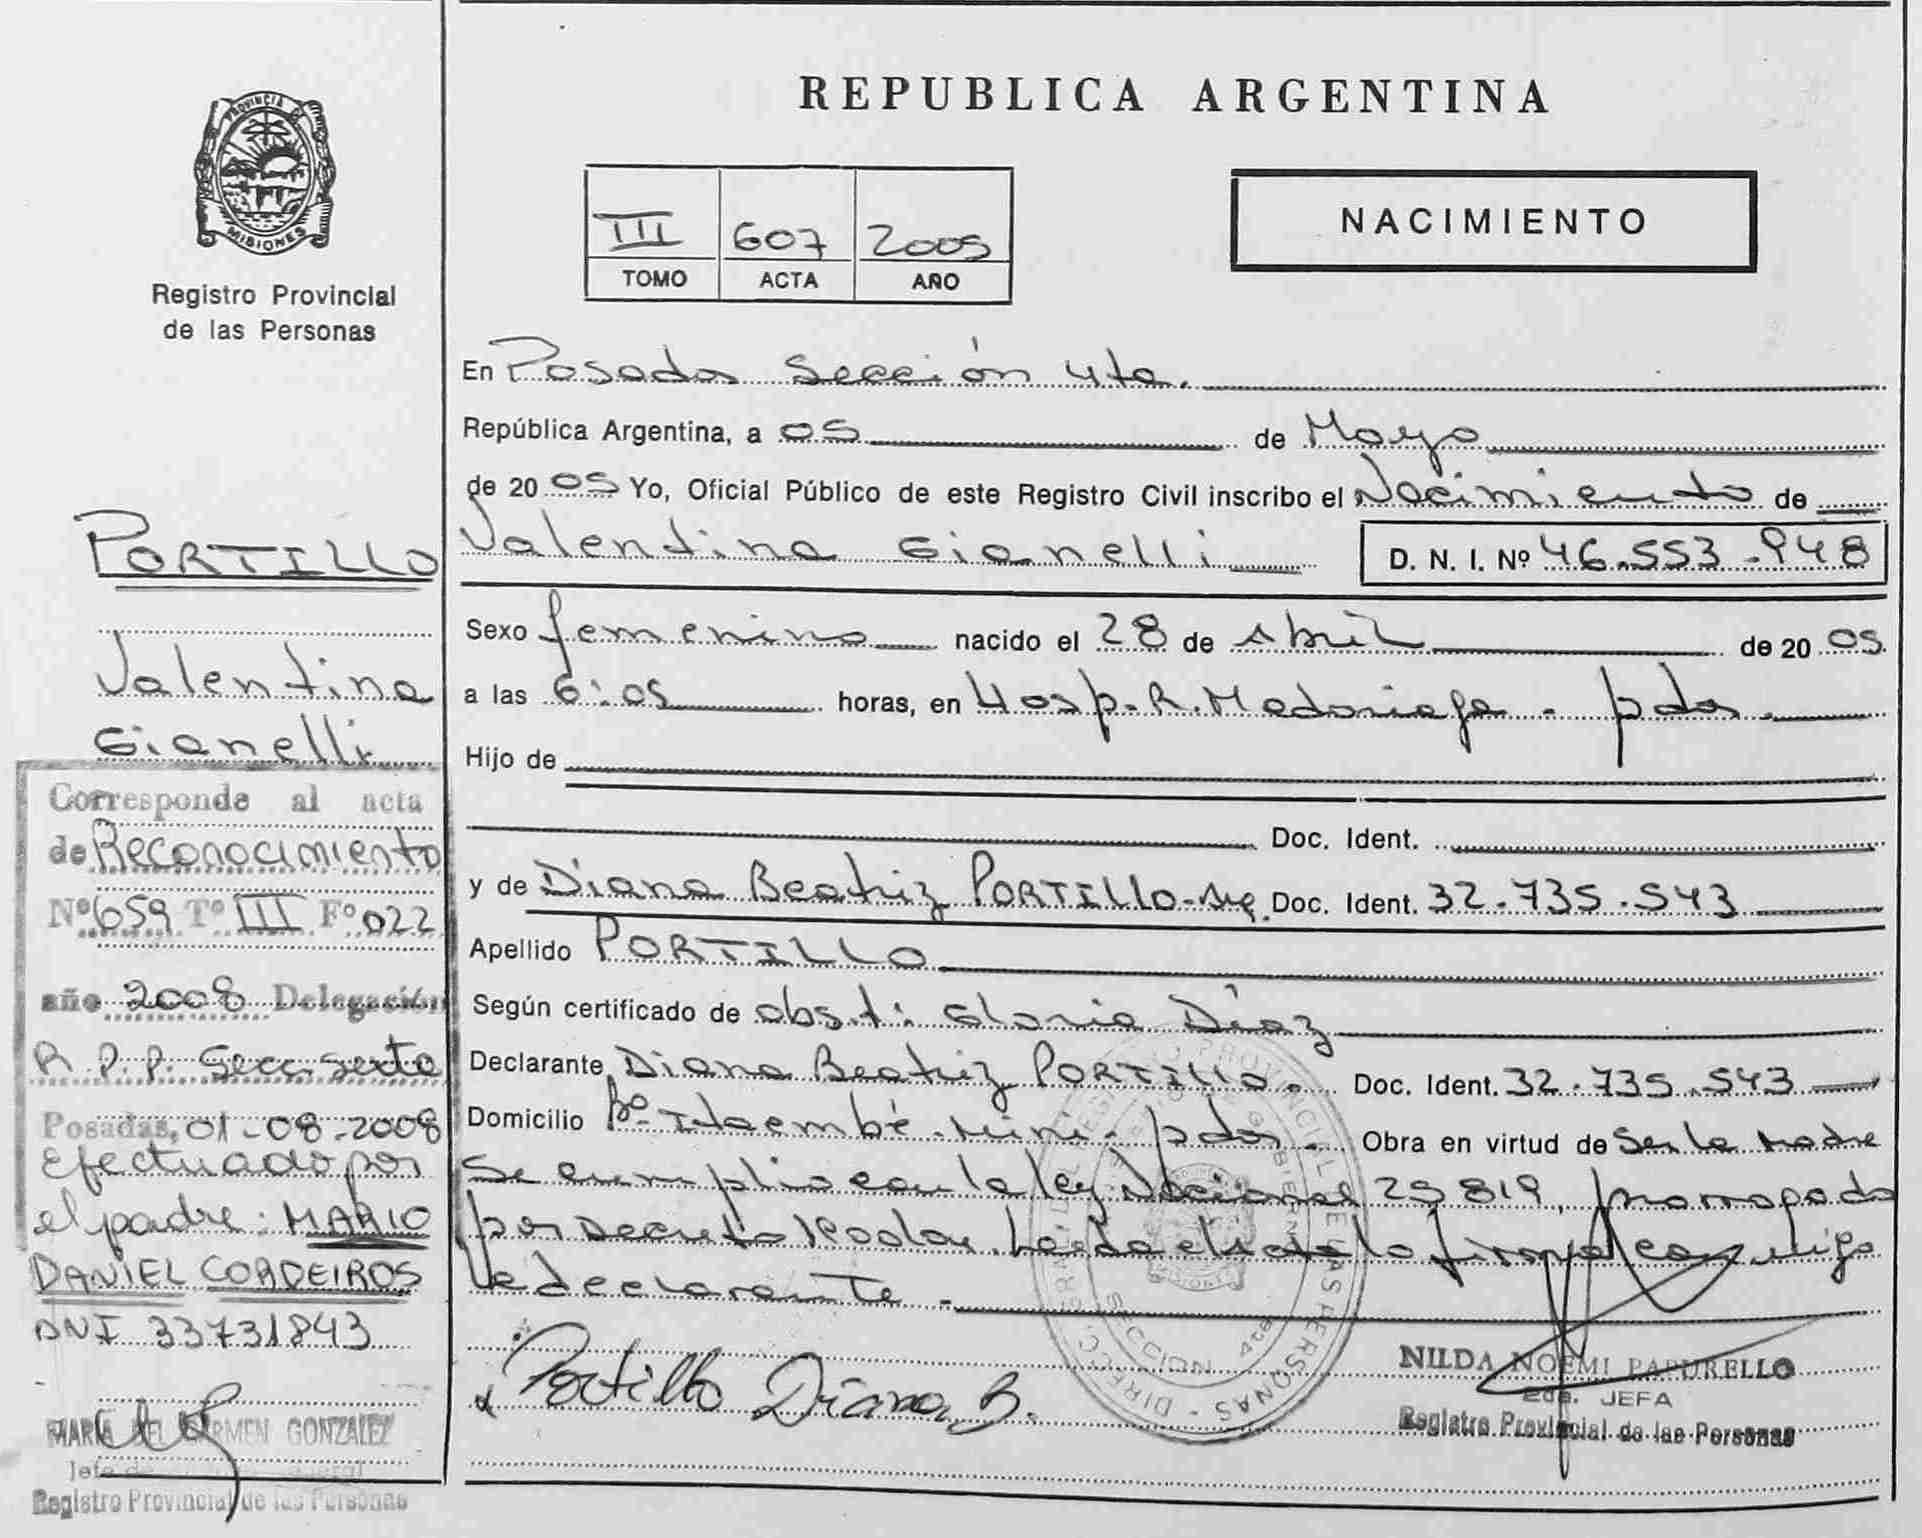 PROVINCIA DE
MISIONES
Registro Provincial
de las Personas
PORTILLO
Valentina
Gianelli
Corresponde al acta
de Reconocimiento
Nº 659 Tº III Fº 022
año 2008 Delegación
R.P.P. Secc. sexta
Posadas, 01-08-2008
Efectuado por
el padre: MARIO
DANIEL CORDEIROS
DNI 33731843
MARIA DEL CARMEN GONZALEZ
Jefe de
Registro Provincial de las Personas
REPUBLICA ARGENTINA
III 607 2005
TOMO ACTA AÑO
NACIMIENTO
En Posadas Sección 4ta.
República Argentina, a 05 de Mayo
de 2005 Yo, Oficial Público de este Registro Civil inscribo el Nacimiento de
Valentina Gianelli D. N. I. Nº 46.553.948
Sexo femenino nacido el 28 de Abril de 2005
a las 6:05 horas, en Hosp. R. Madariaga - pdas.
Hijo de
Doc. Ident.
y de Diana Beatriz PORTILLO- Doc. Ident. 32.735.543
Apellido PORTILLO
Según certificado de obst: Gloria Díaz
Declarante Diana Beatriz PORTILLO. Doc. Ident. 32.735.543
Domicilio Bº Itaembé-Mini- pdas. Obra en virtud de Ser la Madre
Se cumplio con la ley Nacional 25819, prorrogada
por Decreto Leída el acta la firma conmigo
la declarante.
Portillo Diana B.
NILDA NOEMI PAPURELLO
2da. JEFA
Registro Provincial de las Personas
SECCION 4ta